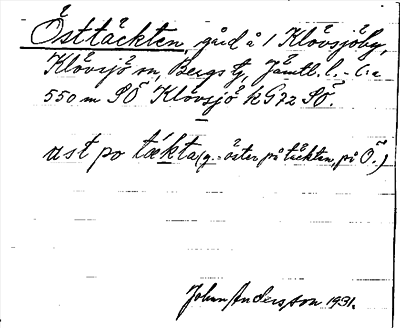 Östtäckten, gård å 1 Klövsjöby,
Klövsjö sn, Bergs tg, Jämtl. l. - C:a
550 m SÖ Klövsjö k G72 SÖ.
ust po tækta (g. = öster på täckten, på Ö.)
John Andersson 1931.